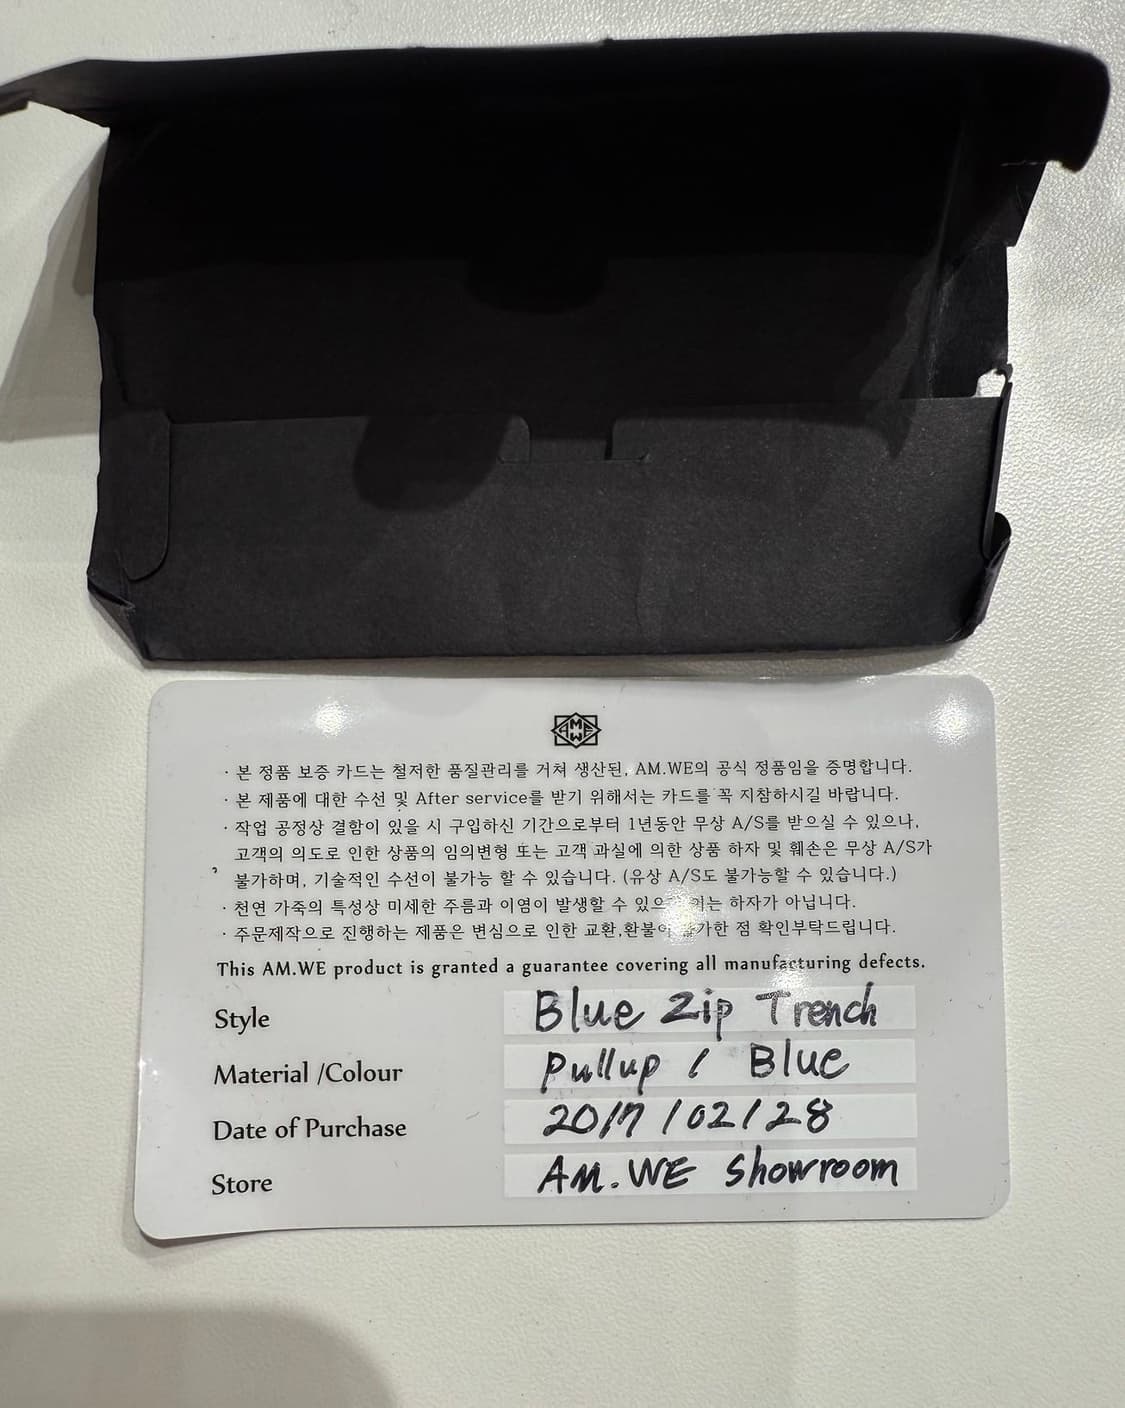 AMWE
· 본 정품 보증 카드는 철저한 품질관리를 거쳐 생산된, AM.WE의 공식 정품임을 증명합니다.
· 본 제품에 대한 수선 및 After service를 받기 위해서는 카드를 꼭 지참하시길 바랍니다.
· 작업 공정상 결함이 있을 시 구입하신 기간으로부터 1년동안 무상 A/S를 받으실 수 있으나,
고객의 의도로 인한 상품의 임의변형 또는 고객 과실에 의한 상품 하자 및 훼손은 무상 A/S가
불가하며, 기술적인 수선이 불가능 할 수 있습니다. (유상 A/S도 불가능할 수 있습니다.)
· 천연 가죽의 특성상 미세한 주름과 이염이 발생할 수 있으 이는 하자가 아닙니다.
· 주문제작으로 진행하는 제품은 변심으로 인한 교환,환불이 불가한 점 확인부탁드립니다.
This AM.WE product is granted a guarantee covering all manufacturing defects.
Style Blue Zip Trench
Material /Colour Pullup / Blue
Date of Purchase 2017/02/28
Store AM.WE Showroom